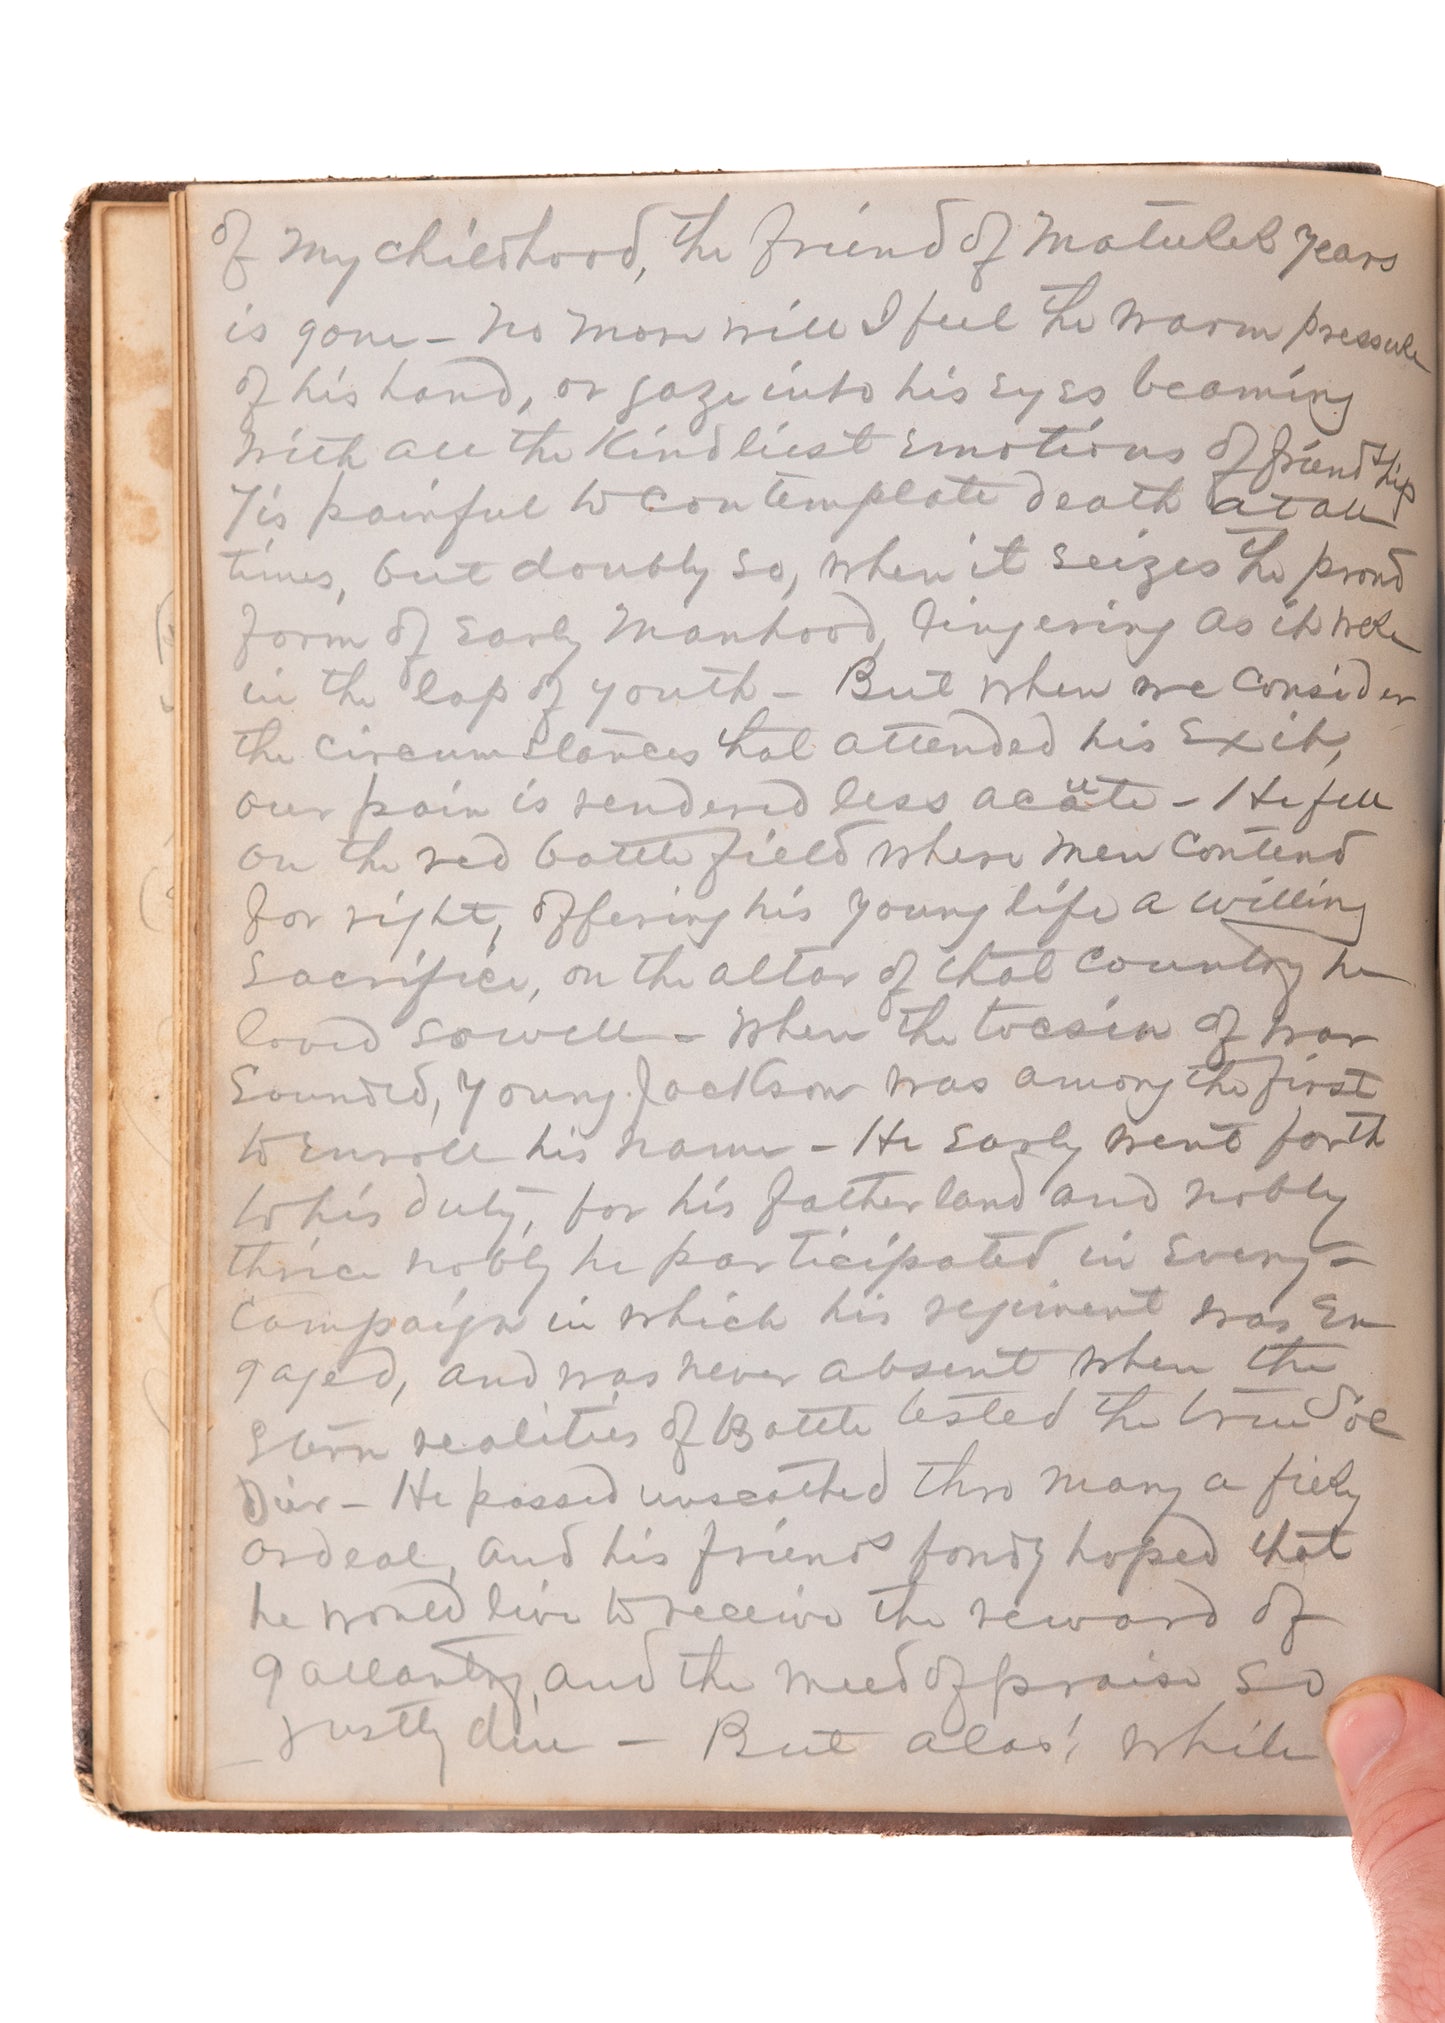 of my childhood, the friend of maturer years
is gone – no more will I feel the warm pressure
of his hand, or gaze into his eyes beaming
with all the kindliest emotions of friendship
Tis painful to contemplate death at all
times, but doubly so, when it seizes the proud
form of early manhood, lingering as it were
in the lap of youth – But when we consider
the circumstances that attended his exit,
our pain is rendered less acute – He fell
on the red battle field where men contend
for right, offering his young life a willing
sacrifice, on the altar of that country he
loved so well – When the tocsin of war
sounded, young Jackson was among the first
to enroll his name – He early went forth
to his duty, for his fatherland and nobly
thrice nobly he participated in every –
campaign in which his regiment was en
gaged, and was never absent when the
stern realities of Battle tested the true Sol
dier – He passed unscathed thro many a fiery
ordeal, and his friends fondly hoped that
he would live to receive the reward of
gallantry, and the meed of praise so
justly due – But alas! while